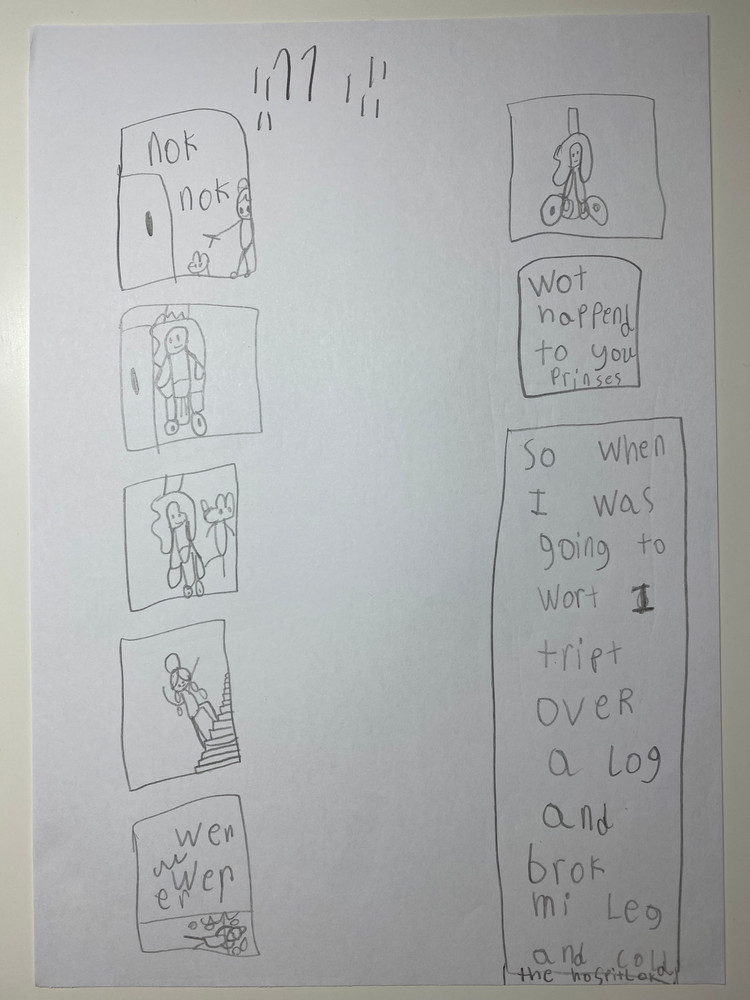 11
nok
nok
wer
Wer
er
Wot
happend
to you
Prinses
So when
I was
going to
wort I
tript
OVeR
a Log
and
brok
mi Leg
and cold
the